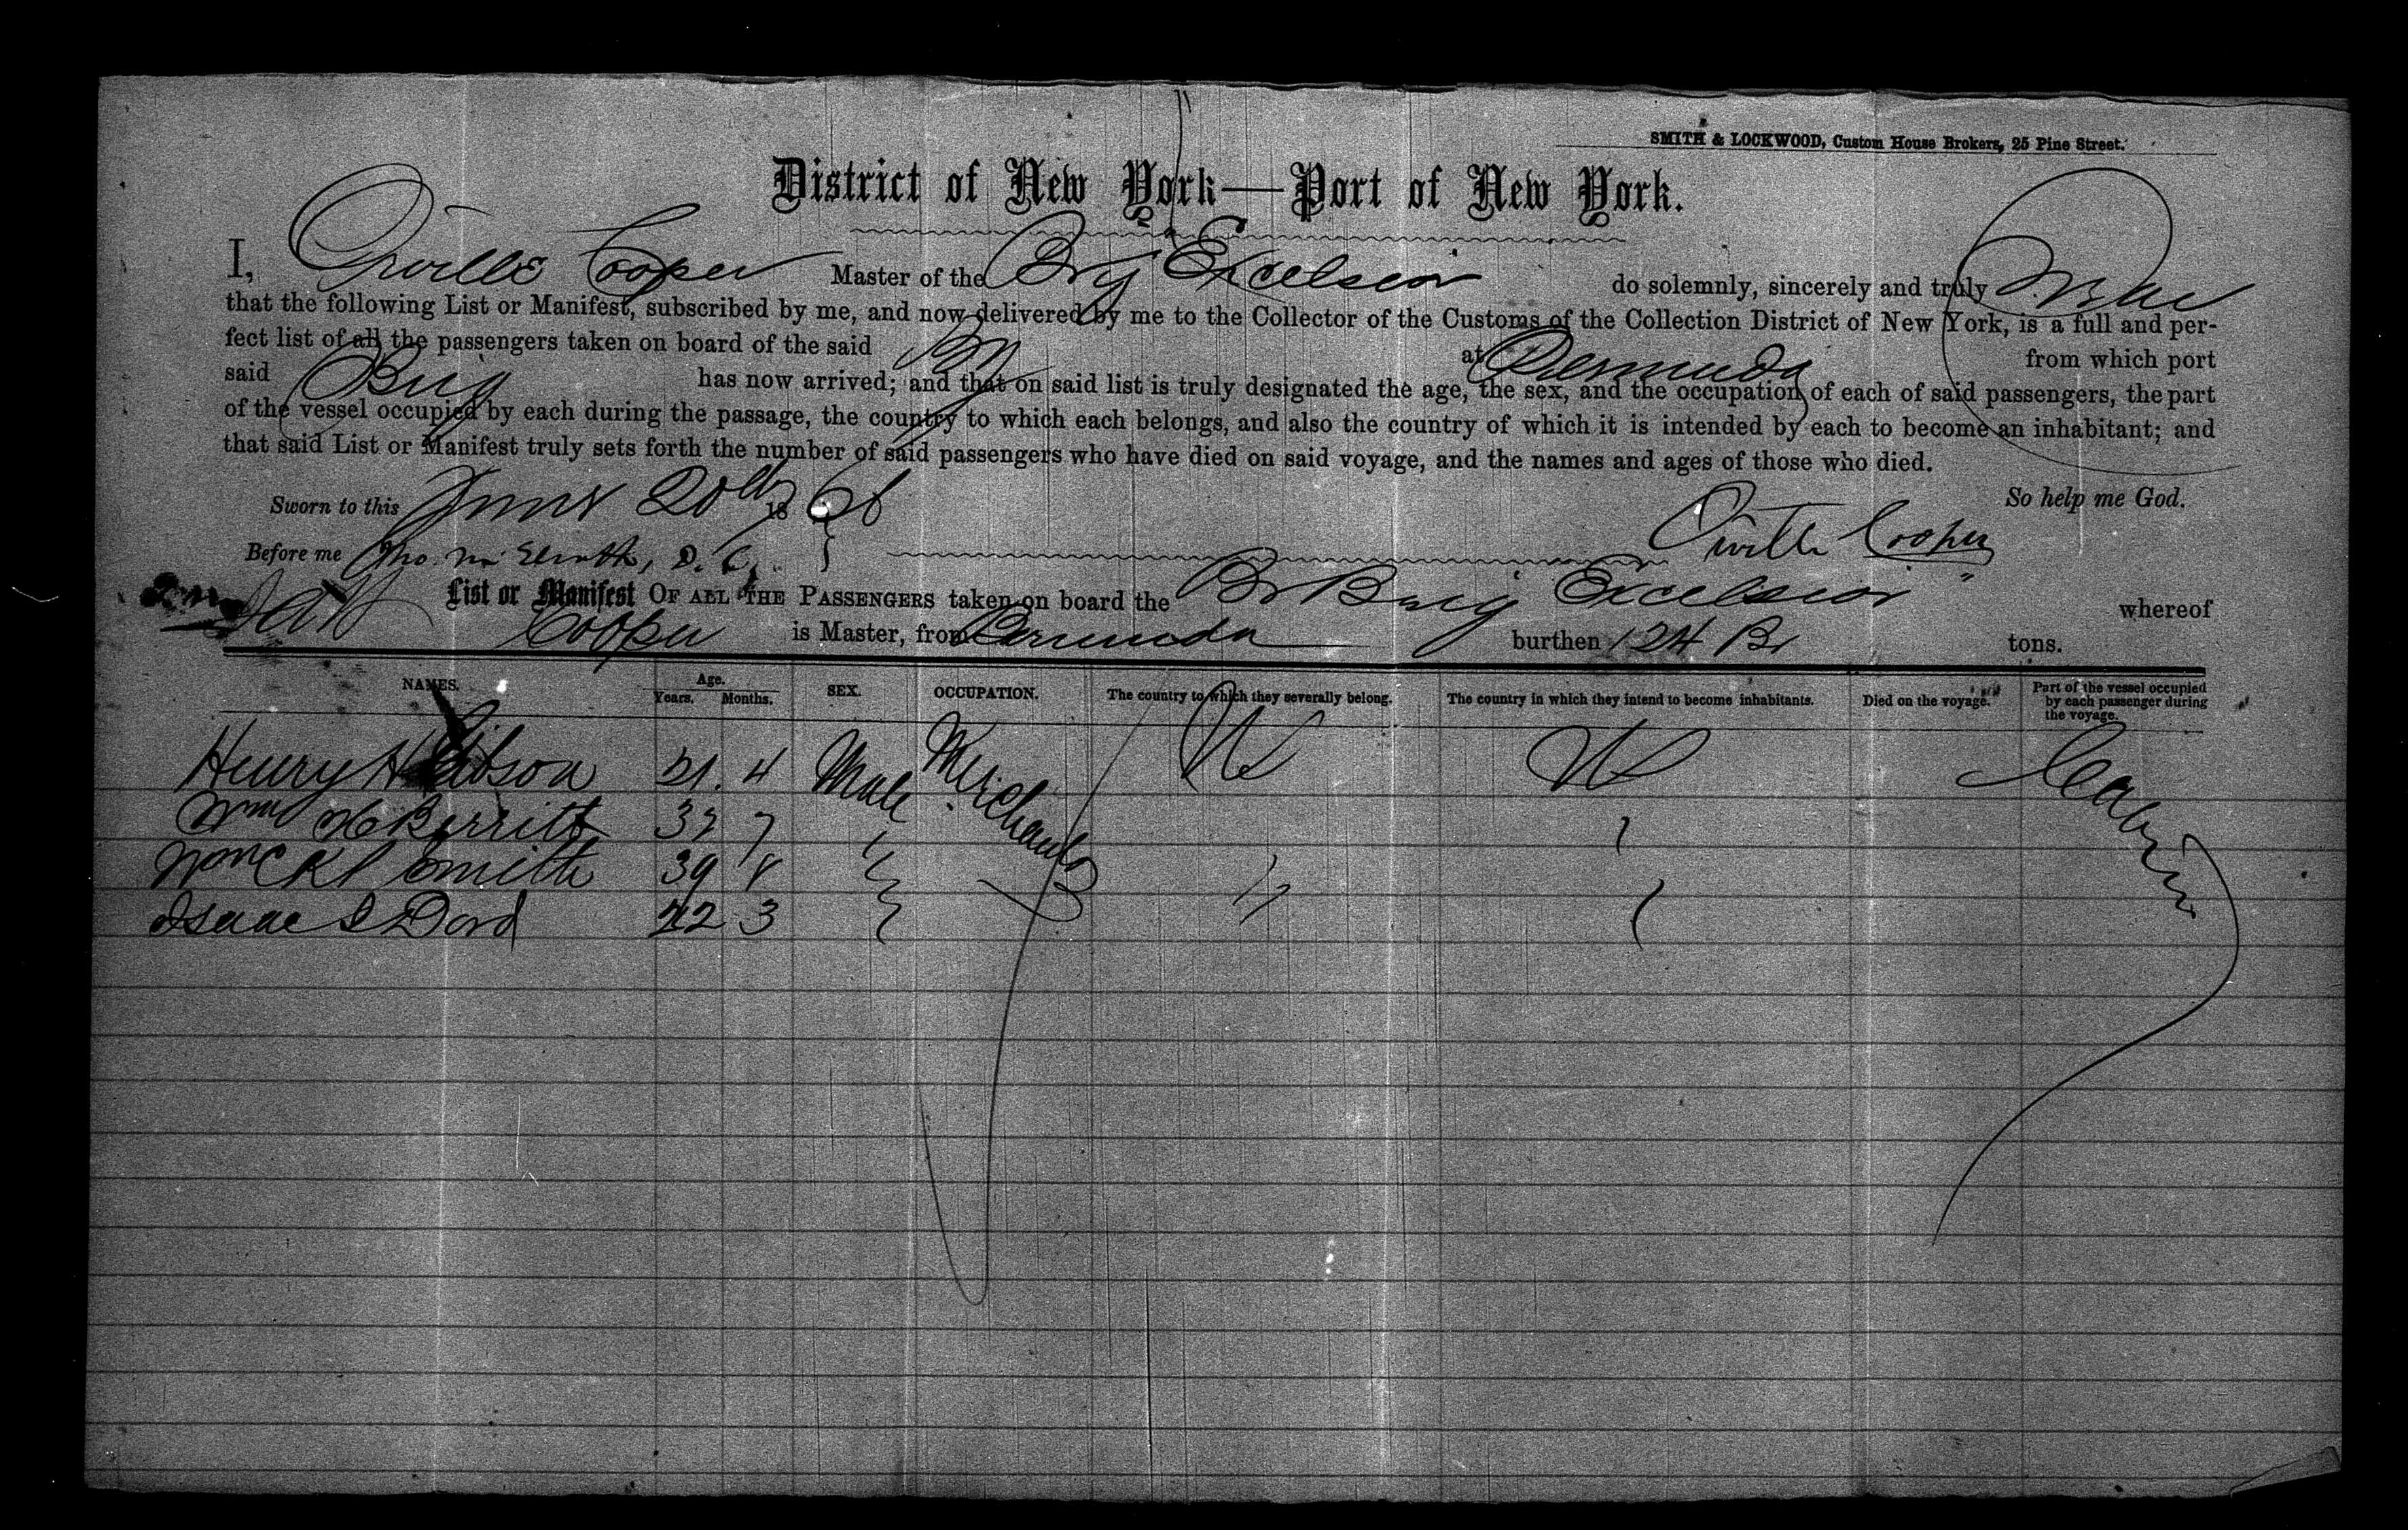 SMITH & LOCKWOOD, Custom House Brokers, 25 Pine Street.
District of New York—Port of New York.
I, Orville Cooper Master of the Brig Excelsior do solemnly, sincerely and truly swear
that the following List or Manifest, subscribed by me, and now delivered by me to the Collector of the Customs of the Collection District of New York, is a full and per-
fect list of all the passengers taken on board of the said Brig at Bermuda from which port
said Brig has now arrived; and that on said list is truly designated the age, the sex, and the occupation of each of said passengers, the part
of the vessel occupied by each during the passage, the country to which each belongs, and also the country of which it is intended by each to become an inhabitant; and
that said List or Manifest truly sets forth the number of said passengers who have died on said voyage, and the names and ages of those who died.
Sworn to this June 20th 18 So help me God.
Before me D. C. Orville Cooper
List or Manifest OF ALL THE PASSENGERS taken on board the Br Brig Excelsior" whereof
Cooper is Master, from Bermuda burthen 124 tons.
NAMES. Age. Years. Months. SEX. OCCUPATION. The country to which they severally belong. The country in which they intend to become inhabitants. Died on the voyage. Part of the vessel occupied by each passenger during the voyage.
Henry H Gibson 4 Male Merchants US US Cabin
Wm 7
Wm Smith 39 8
Isaac 3